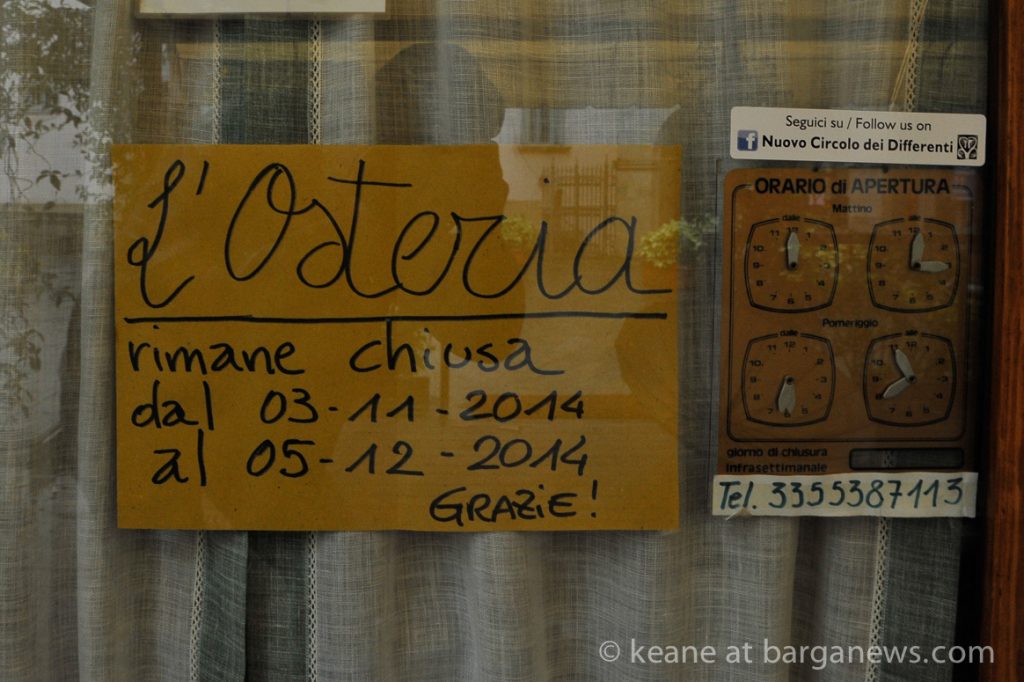 L'Osteria
rimane chiusa
dal 03-11-2014
al 05-12-2014
GRAZIE!
Seguici su / Follow us on
f Nuovo Circolo dei Differenti
ORARIO di APERTURA
Mattino
dalle alle
Pomeriggio
dalle alle
giorno di chiusura
infrasettimanale
Tel. 3355387113
© keane at barganews.com